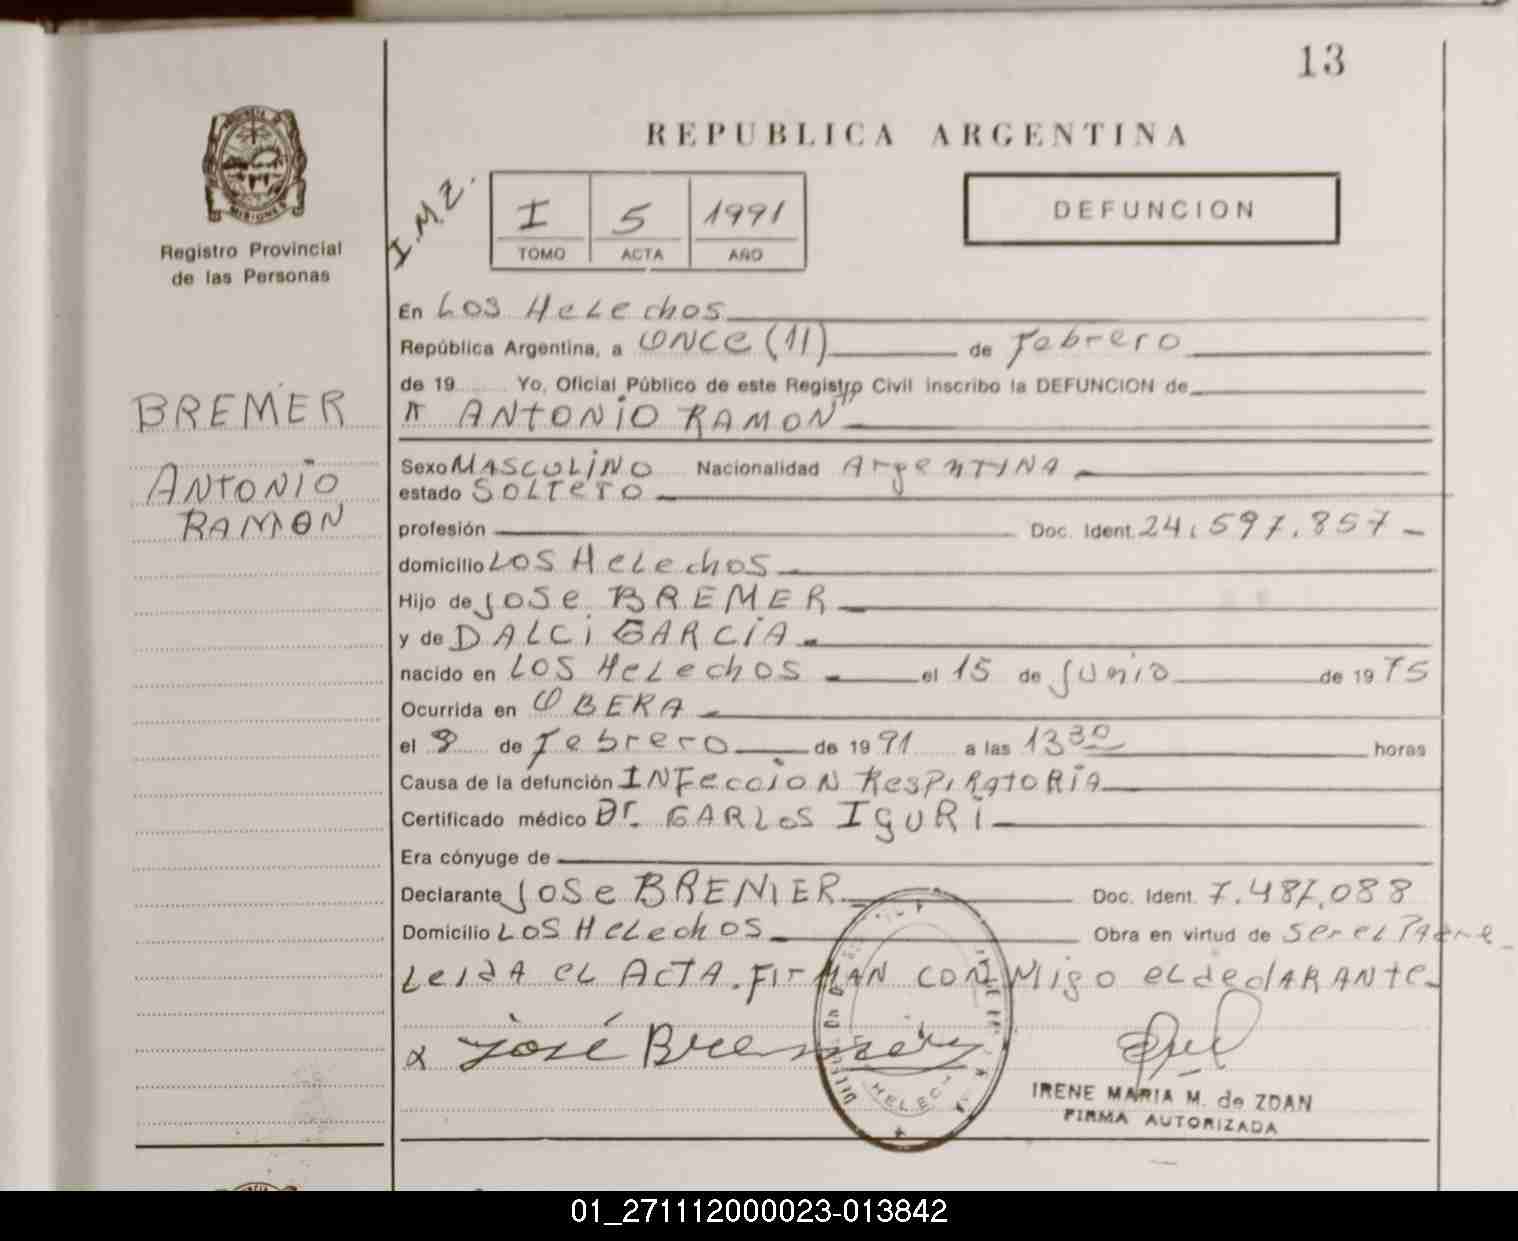 13
REPUBLICA ARGENTINA
PROVINCIA DE
MISIONES
Registro Provincial
de las Personas
I.M.Z.
I 5 1991
TOMO ACTA AÑO
DEFUNCION
En Los Helechos
República Argentina, a once (11) de Febrero
de 19 Yo, Oficial Público de este Registro Civil inscribo la DEFUNCION de
BREMER
" ANTONIO RAMON"
ANTONIO
RAMON
Sexo MASCULINO Nacionalidad Argentina
estado Soltero
profesión Doc. Ident. 24.597.857
domicilio Los Helechos
Hijo de Jose BREMER
y de DALCi GARCiA
nacido en Los Helechos el 15 de Junio de 1975
Ocurrida en OBERA
el 8 de Febrero de 1991 a las 13 30 horas
Causa de la defunción INFeccion Respiratoria
Certificado médico Dr. CARLOS IGURI
Era cónyuge de
Declarante Jose BREMER Doc. Ident. 7.487.088
Domicilio Los Helechos Obra en virtud de Ser el Padre
Leida el Acta. Firman conmigo el declarante
José Bremer
HELECH
IRENE MARIA M. de ZDAN
FIRMA AUTORIZADA
01_271112000023-013842